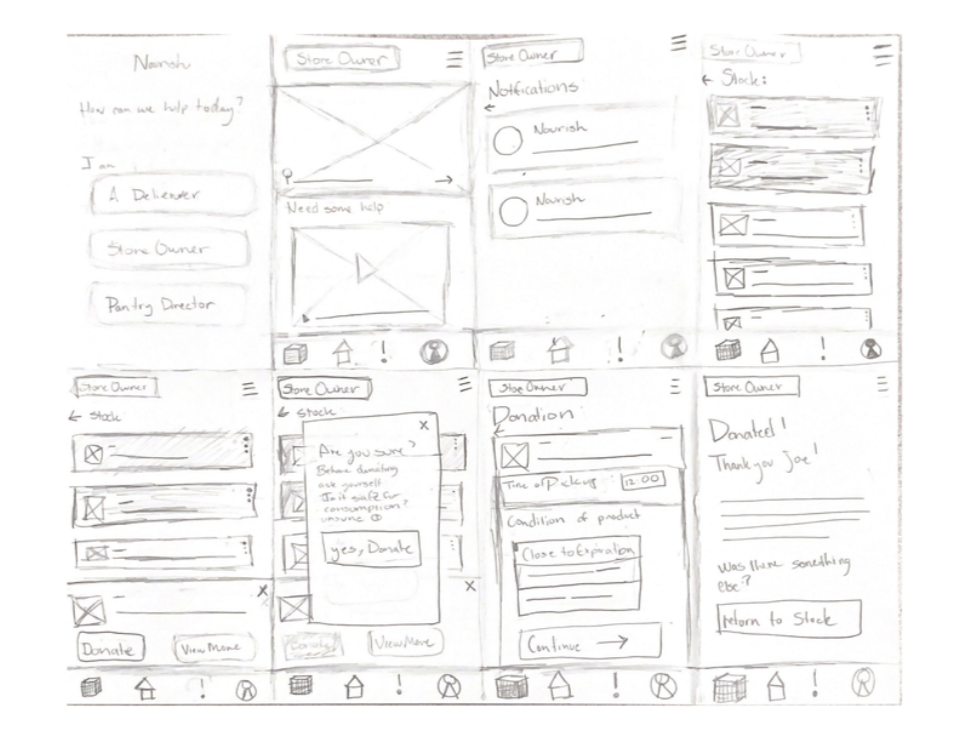 Nourish
How can we help today?
I am
A Deliverer
Store Owner
Pantry Director
Store Owner
Need some help
!
Store Owner
Notifications
Nourish
Nourish
!
Store Owner
← Stock:
!
Store Owner
← Stock
x
Donate
View More
!
Store Owner
← Stock
x
Are you sure?
Before donating
ask yourself
Is it safe for
consumption?
unsure
yes, Donate
x
Donate
View More
!
Store Owner
Donation
Time of Pickup 12:00
Condition of product
Close to Expiration
Continue →
!
Store Owner
Donated!
Thank you Joe!
Was there something
else?
return to Stock
!